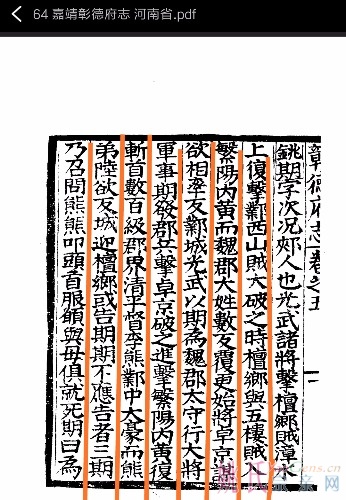 64 嘉靖彰德府志 河南省.pdf
彰德府志卷之五
銚期字次況郟人也光武諸將擊檀鄉賊漳水
上復擊鄴西山賊大破之時檀鄉與五樓賊
繁陽内黄而魏郡大姓數反覆更始將卓京
欲相率反鄴城光武以期為魏郡太守行大將
軍事期發郡兵擊卓京破之進擊繁陽内黄復
斬首數百級郡界清平督李熊鄴中大豪而熊
弟陸欲反城迎檀鄉或告期期不應告者三期
乃召問熊熊叩頭首服願與母俱就死期曰為